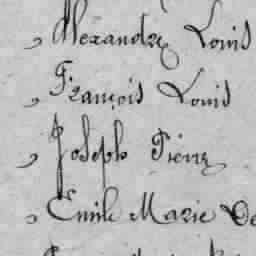 , Alexandre Louis
, François Louis
, Joseph Pierre
, Emile Marie